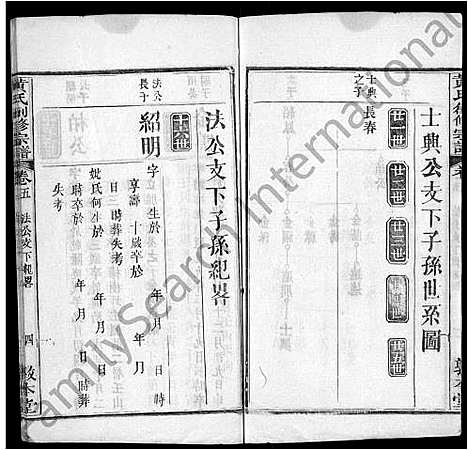 黃氏創修宗譜
士典公支下子孫世系圖
廿一世
廿二世
廿三世
廿四世
廿五世
士典
之子
長春
敦本堂
法公支下子孫紀畧
十六世
法公
長子
紹明
字 生於 年 月 日 時
享壽 十歲卒於 年 月
日 時葬失考
妣氏何生於 年 月 日
時卒於 年 月 日時葬
失考
黃氏創修宗譜
卷五
法公支下紀畧
四
敦本堂
FamilySearch International